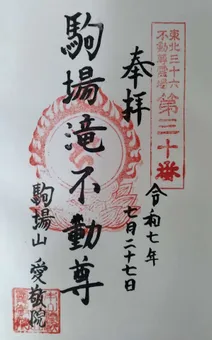 東北三十六
不動尊霊場
第三十番
奉拝
令和七年
七月二十七日
駒場滝不動尊
駒場山 愛敬院